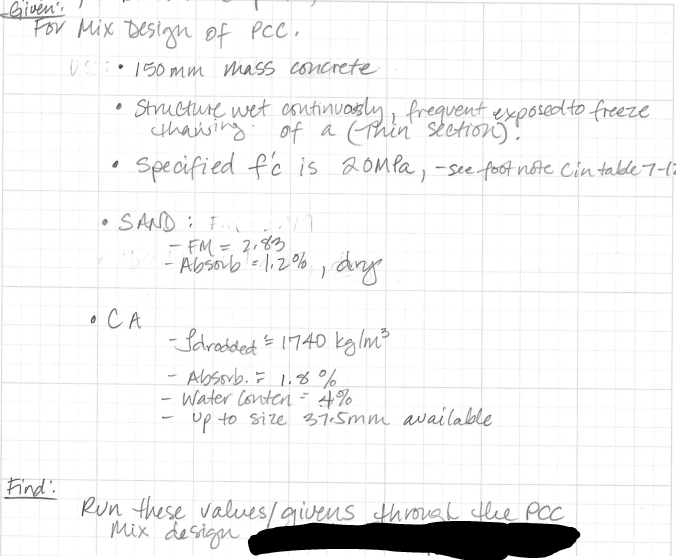 Given:
For Mix Design of PCC.
• 150mm mass concrete
• Structure wet continuously, frequent exposed to freeze
thawing of a (Thin section).
• Specified f'c is 20MPa, -see foot note C in table 7-1
• SAND:
- FM = 2.83
- Absorb = 1.2%, dry
• CA
- ρdrodded = 1740 kg/m³
- Absorb. = 1.8%
- Water Conten = 4%
- Up to size 37.5mm available
Find:
Run these values/givens through the PCC
Mix design